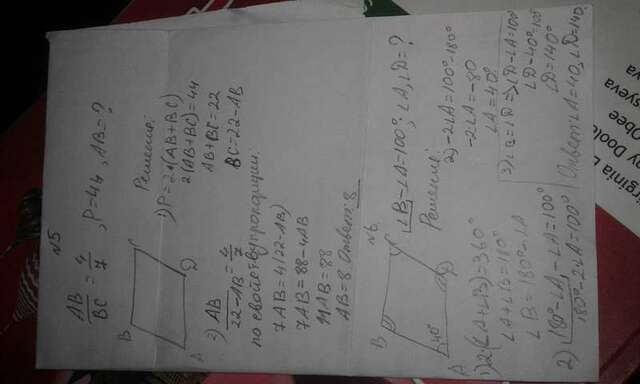 N5
AB/BC = 4/7, P=44, AB=?
B
A
D
Решения:
1) P=2·(AB+BC)
2(AB+BC)=44
AB+BC=22
BC=22-AB
2) AB/22-AB = 4/7
по свойству пропорции.
7AB=4(22-AB)
7AB=88-4AB
11AB=88
AB=8 Ответ: 8
N6
B
A
40°
D
∠B-∠A=100°; ∠A, ∠D=?
Решения:
1) 2·(∠A+∠B)=360°
∠A+∠B=180°
∠B=180°-∠A
2) 180°-∠A,-∠A=100°
180°-2∠A=100°
2) -2∠A=100°-180°
-2∠A=-80
∠A=40°
3) ∠B=∠D=>∠D-∠A=100°
∠D-40°=100°
∠D=140°
Ответ: ∠A=40, ∠D=140.
Virginia L
Doole
Obee
syeva